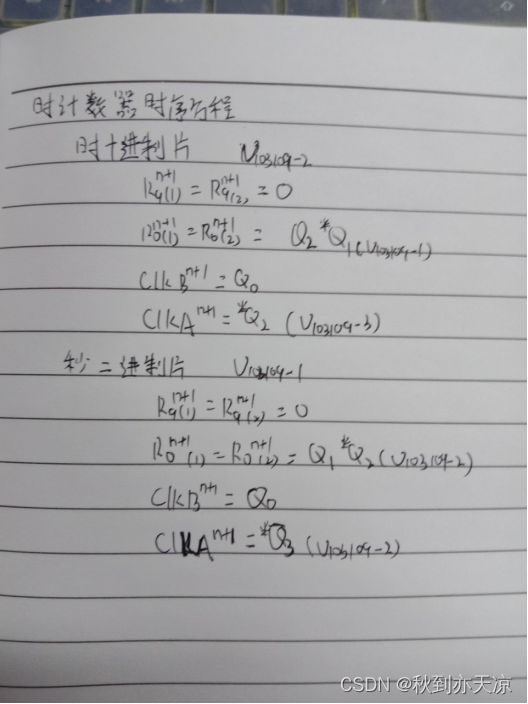 时计数器时序方程
时十进制片 U103109-2
R9(1)ⁿ⁺¹ = R9(2)ⁿ⁺¹ = 0
R0(1)ⁿ⁺¹ = R0(2)ⁿ⁺¹ = Q2*Q1(U103109-1)
ClkBⁿ⁺¹ = Q0
ClkAⁿ⁺¹ = *Q2 (U103109-3)
秒二进制片 U103109-1
R9(1)ⁿ⁺¹ = R9(2)ⁿ⁺¹ = 0
R0ⁿ⁺¹(1) = R0ⁿ⁺¹(2) = Q1*Q2(U103109-2)
ClkBⁿ⁺¹ = Q0
ClkAⁿ⁺¹ = *Q3 (U103109-2)
CSDN @秋到亦天凉